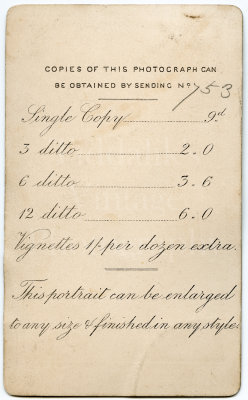 COPIES OF THIS PHOTOGRAPH CAN
BE OBTAINED BY SENDING No. 753
Single Copy 9d
3 ditto 2.0
6 ditto 3.6
12 ditto 6.0
Vignettes 1/- per dozen extra.
This portrait can be enlarged
to any size & finished in any style.